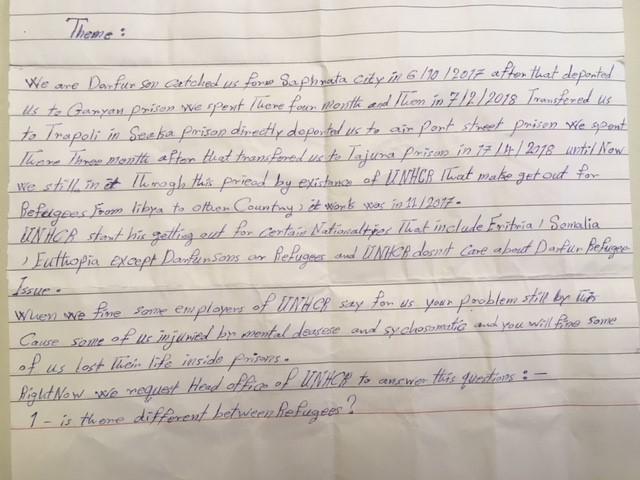 Theme:
We are Darfur son catched us form Saphrata city in 6/10/2017 after that deported
us to Garyan prison we spent There four month and Then in 7/2/2018 Transfered us
to Trapoli in Seeka prison directly deported us to air Port street prison we spent
There Three month after that transfered us to Tajura prison in 17/4/2018 until Now
we still in it Throgh this priead by existance of UNHCR That make get out for
Refugees From libya to other Country, it work was in 11/2017.
UNHCR start his getting out for certain Nationaltyies That include Eritria, Somalia
, Euthiopia except Darfursons or Refugees and UNHCR dosnit care about Darfur Refugee
Issue.
When we fine some employers of UNHCR say for us your problem still by
Cause some of us injuried by mental deasese and sychosomatic and you will fine some
of us lost Their life inside prisons.
Right Now we request Head office of UNHCR to answer this questions:-
1- is there different between Refugees?